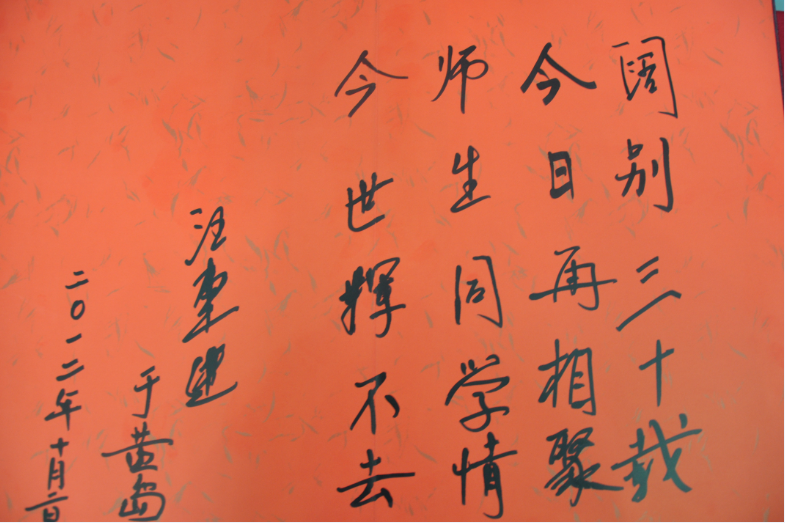 阔别三十载
今日再相聚
师生同学情
今世挥不去
汪東
于黄岛
二〇一二年十月二日